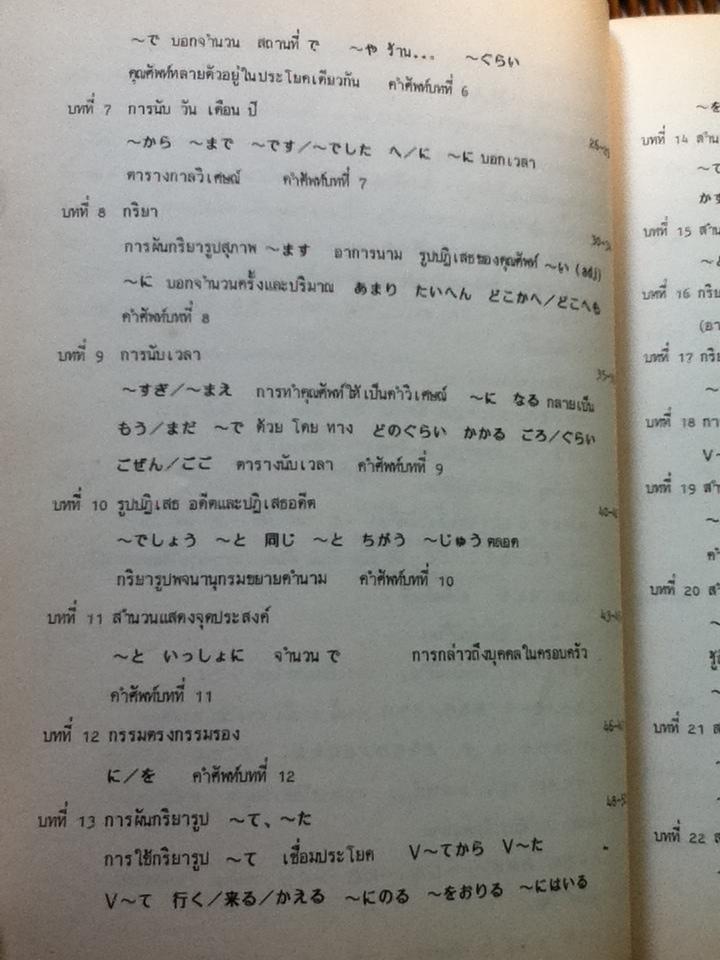 ~で บอกจำนวน สถานที่ で ~や ร้าน... ~ぐらい
คุณศัพท์หลายตัวอยู่ในประโยคเดียวกัน คำศัพท์บทที่ 6
บทที่ 7 การนับ วัน เดือน ปี
~から ~まで ~です/~でした へ/に ~に บอกเวลา
ตารางกาลวิเศษณ์ คำศัพท์บทที่ 7
บทที่ 8 กริยา
การผันกริยารูปสุภาพ ~ます อาการนาม รูปปฏิเสธของคุณศัพท์ ~い (adj)
~に บอกจำนวนครั้งและปริมาณ あまり たいへん どこかへ/どこへも
คำศัพท์บทที่ 8
บทที่ 9 การนับเวลา
~すぎ/~まえ การทำคุณศัพท์ให้เป็นคำวิเศษณ์ ~に なる กลายเป็น
もう/まだ ~で ด้วย โดย ทาง どのぐらい かかる ごろ/ぐらい
ごぜん/ごご ตารางนับเวลา คำศัพท์บทที่ 9
บทที่ 10 รูปปฏิเสธ อดีตและปฏิเสธอดีต
~でしょう ~と 同じ ~と ちがう ~じゅう ตลอด
กริยารูปพจนานุกรมขยายคำนาม คำศัพท์บทที่ 10
บทที่ 11 สำนวนแสดงจุดประสงค์
~と いっしょに จำนวน で การกล่าวถึงบุคคลในครอบครัว
คำศัพท์บทที่ 11
บทที่ 12 กรรมตรงกรรมรอง
に/を คำศัพท์บทที่ 12
บทที่ 13 การผันกริยารูป ~て、~た
การใช้กริยารูป ~て เชื่อมประโยค V~てから V~た
V~て 行く/来る/かえる ~にのる ~をおりる ~にはいる
บทที่ 14
บทที่ 15
บทที่ 16
บทที่ 17
บทที่ 18
บทที่ 19
บทที่ 20
บทที่ 21
บทที่ 22